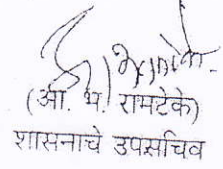 (आ. भ. रामटेके)
शासनाचे उपसचिव